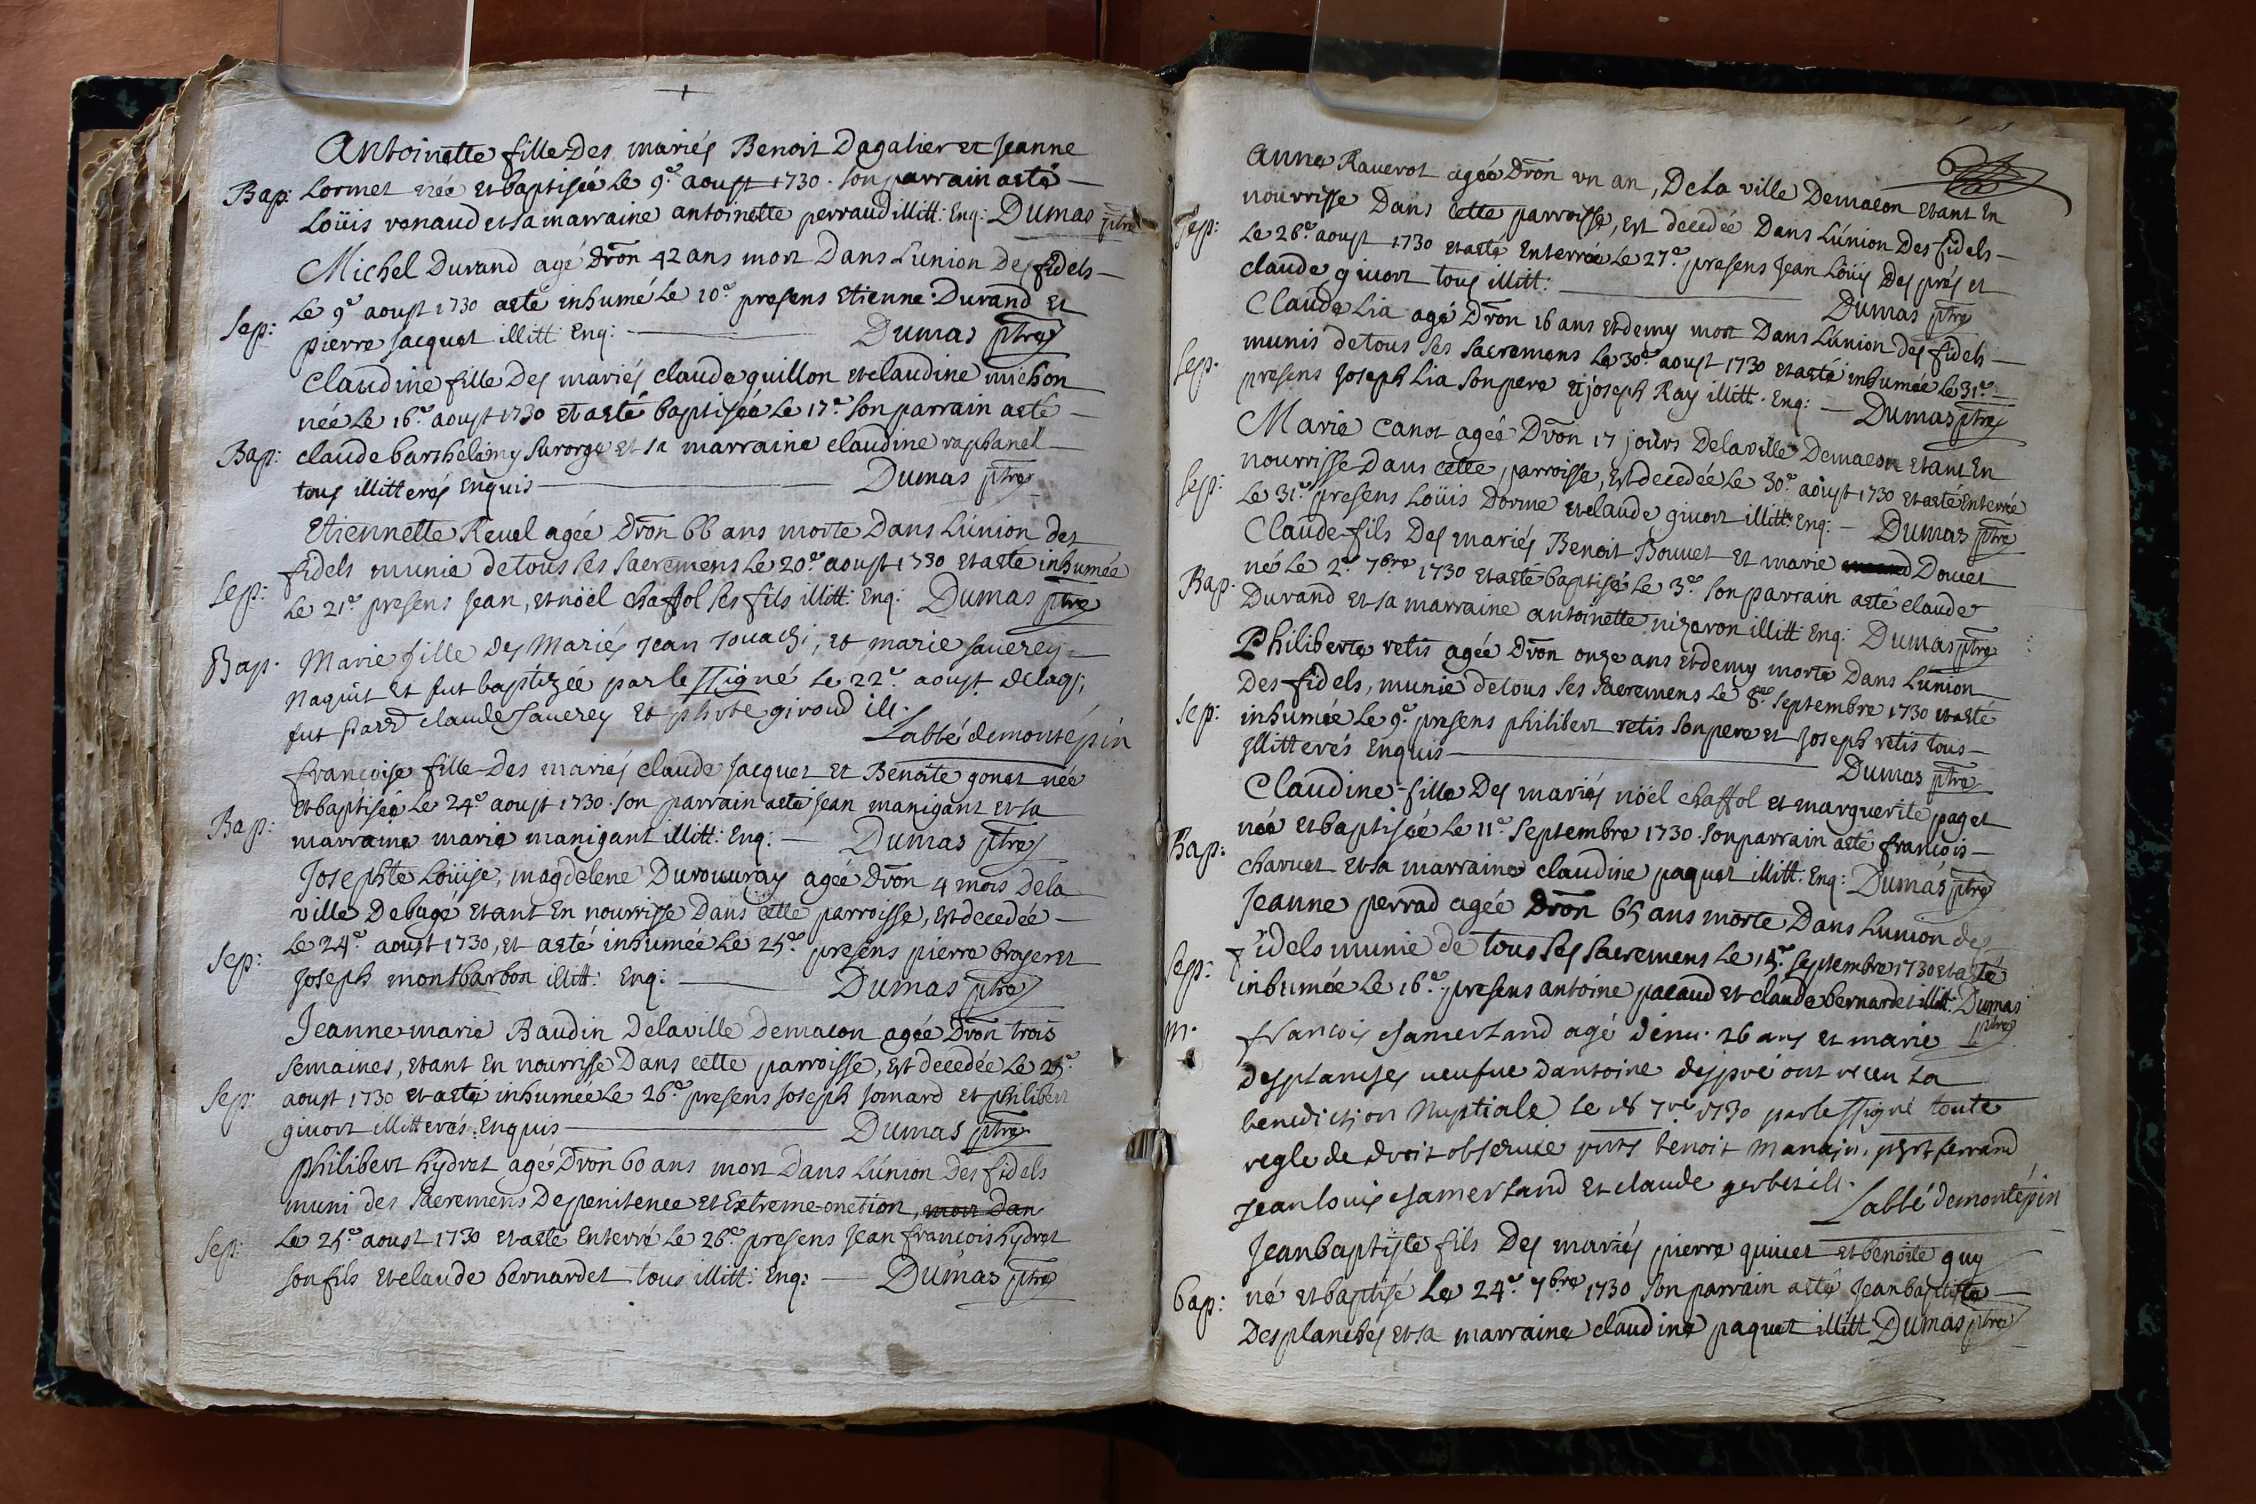 Antoinette fille Des mariés Benoit Dagalier et Jeanne
Bap: Lormet née et baptisée Le 9.e aoust 1730. son parrain aeté
Loüis venaud et sa marraine antoinette perraud illitt: Enq: Dumas ptre
Michel Durand agé Dron 42 ans mort Dans L'union Des fidels
Le 9.e aoust 1730 aeté inhumé Le 10.e presens Etienne Durand et
Sep: pierre Jacquet illitt: Enq: Dumas ptre
Claudine fille Des mariés claude guillon et claudine michon
née Le 16.e aoust 1730 et aeté baptisée Le 17.e son parrain aeté
Bap: claude barthelemy Surorge et sa marraine claudine raphanel
tous illitterés Enquis Dumas ptre
Etiennette Revel agée Dron 66 ans morte Dans L'union des
fidels munie de tous ses sacremens Le 20.e aoust 1730 et aeté inhumée
Sep: Le 21.e presens Jean, et nöel chaffol ses fils illitt: Enq: Dumas ptre
Bap. Marie fille des Mariés Jean Touachi, et marie sauerey
naquit et fut baptizée par le ssigné le 22.e aoust de lag;
fut parr claude sauerey et phbte giroud ill.
Labbé demontépin
françoise fille Des mariés claude Jacquet et Benoite gonet née
et baptisée Le 24.e aoust 1730. son parrain aeté Jean manigant et sa
Bap: marraine marie manigant illitt: Enq: Dumas ptre
Josephte Loüise, magdelene Durouuray agée Dron 4 mois De la
ville De bagé Etant En nourrisse Dans cette parroisse, Est decedée
Le 24.e aoust 1730, et aeté inhumée Le 25.e presens pierre broyer et
Sep: Joseph montbarbon illitt: Enq: Dumas ptre
Jeanne marie Baudin De la ville De macon agée Dron trois
semaines, etant En nourrisse Dans cette parroisse, Est decedée Le 25.e
Sep: aoust 1730 et aeté inhumée Le 26.e presens Joseph Jomard et philibert
givort illitterés Enquis Dumas ptre
philibert hydret agé Dron 60 ans mort Dans L'union Des fidels
muni des sacremens De penitence et Extreme-onction, mort Dan
Sep: Le 25.e aoust 1730 et aeté Enterré Le 26.e presens Jean françois hydret
son fils et claude bernardet tous illitt: Enq: Dumas ptre
Anne Raverot agée Dron un an, De la ville De macon Etant En
nourrisse Dans cette parroisse, Est decedée Dans L'union Des fidels
Sep: Le 26.e aoust 1730 et aeté Enterrée Le 27.e presens Jean Loüis Des prés et
claude givort tous illitt: Dumas ptre
Claude Lia agé Dron 16 ans et demy mort Dans L'union des fidels
munis de tous ses sacremens Le 30.e aoust 1730 et aeté inhumée Le 31.e
Sep. presens Joseph Lia son pere et joseph Ray illitt. Enq: Dumas ptre
Marie Canot agée Dron 17 joûrs De la ville De macon etant En
nourrisse Dans cette parroisse, Est decedée Le 30.e aoust 1730 et aeté Enterrée
Sep: Le 31.e presens Loüis Dorme et claude givort illitt: Enq: Dumas ptre
Claude fils Des mariés Benoit Bouvet et marie Doucet
né Le 2.e 7bre 1730 et aeté baptisé Le 3.e son parrain aeté claude
Bap. Durand et sa marraine antoinette nizeron illitt: Enq: Dumas ptre
Philiberte retis agée Dron onze ans et demy morte Dans L'union
Des fidels, munie de tous ses sacremens Le 8.e septembre 1730 et aeté
Sep: inhumée Le 9.e presens philibert retis son pere et Joseph retis tous
illitterés Enquis Dumas ptre
Claudine fille Des mariés nöel chaffol et marguerite paget
née et baptisée Le 11.e septembre 1730. son parrain aeté françois
Bap: charvet et sa marraine claudine paquet illitt. Enq: Dumas ptre
Jeanne perrad agée Dron 65 ans morte Dans L'union des
fidels munie de tous ses sacremens Le 15.e septembre 1730 et aeté
Sep: inhumée Le 16.e, presens antoine pacaud et claude bernardet illitt: Dumas
ptre
m. françois chamerland agé denv. 26 ans et marie
desplanches veufue dantoine despré ont receu la
benediction Nuptiale le 18 7re 1730 par le ssigné toute
regle de droit obseruée pnts benoit manain, phbt ferrand
Jean louis chamerland et claude gerbet ill.
Labbé demontépin
Jean baptiste fils Des mariés pierre quivet et benoite guy
bap: né et baptisé Le 24.e 7bre 1730 son parrain aeté Jean baptiste
Desplanches et sa marraine claudine paquet illitt Dumas ptre